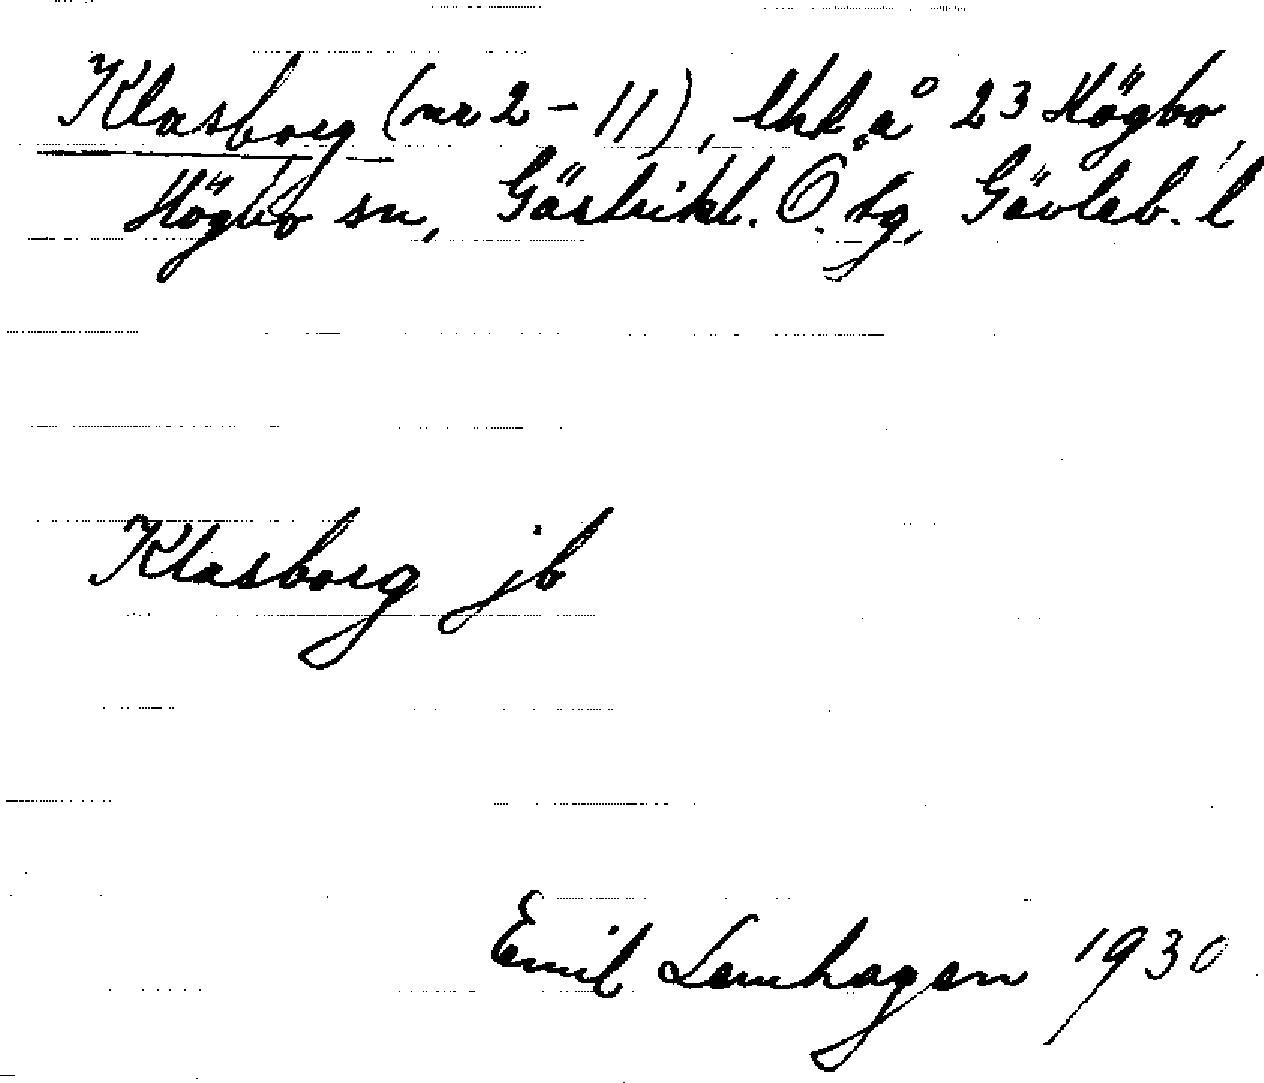 Klasborg (nr 2 - 11), lht å 23 Högbo,
Högbo sn, Gästrikl. Ö. tg, Gävleb. l
Klasborg jb
Emil Lemhagen 1930